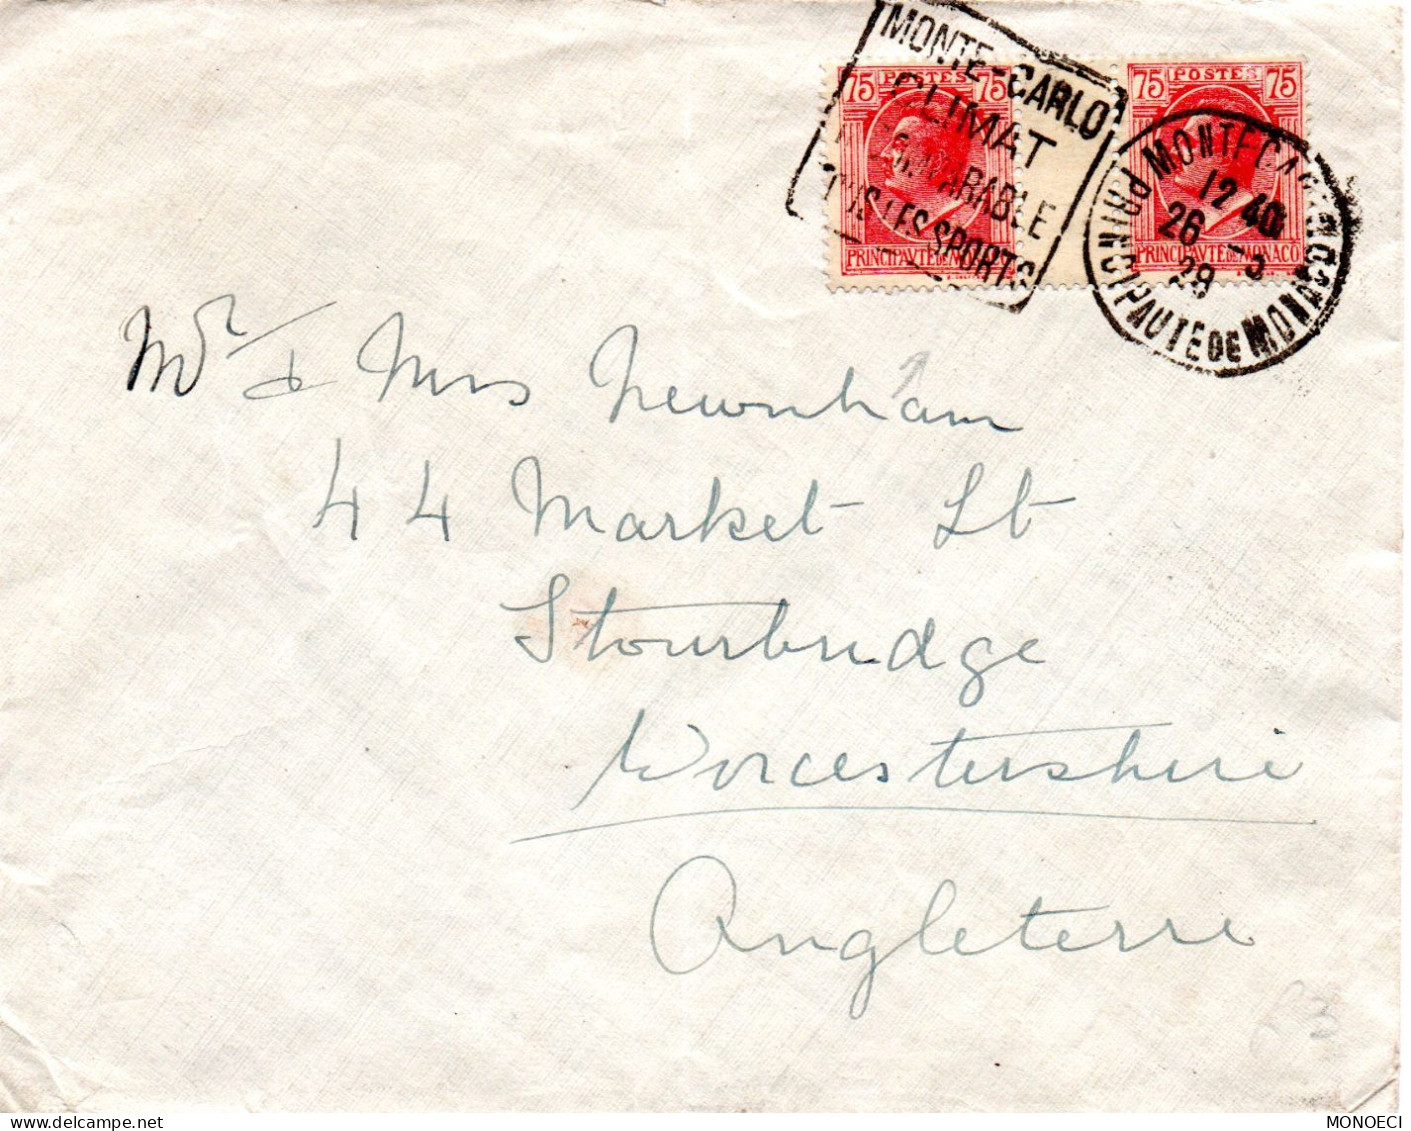 MONTE-CARLO
CLIMAT
TOUS LES SPORTS
75 POSTES 75
PRINCIPAVTÉ DE MONACO
75 POSTES 75
PRINCIPAVTÉ DE MONACO
MONTE CARLO
12 40
26 -3
29
PRINCIPAUTE DE MONACO
Mr & Mrs Newnham
44 Market St
Stourbridge
Worcestershire
Angleterre
delcampe.net
MONOECI